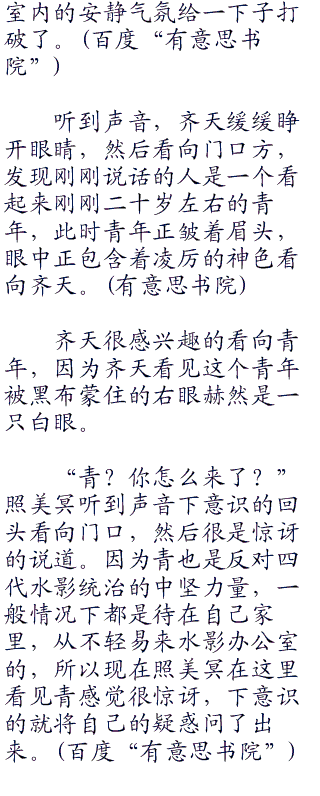 室内的安静气氛给一下子打
破了。(百度“有意思书
院”)
听到声音，齐天缓缓睁
开眼睛，然后看向门口方，
发现刚刚说话的人是一个看
起来刚刚二十岁左右的青
年，此时青年正皱着眉头，
眼中正包含着凌厉的神色看
向齐天。(有意思书院)
齐天很感兴趣的看向青
年，因为齐天看见这个青年
被黑布蒙住的右眼赫然是一
只白眼。
“青？你怎么来了？”
照美冥听到声音下意识的回
头看向门口，然后很是惊讶
的说道。因为青也是反对四
代水影统治的中坚力量，一
般情况下都是待在自己家
里，从不轻易来水影办公室
的，所以现在照美冥在这里
看见青感觉很惊讶，下意识
的就将自己的疑惑问了出
来。(百度“有意思书院”)